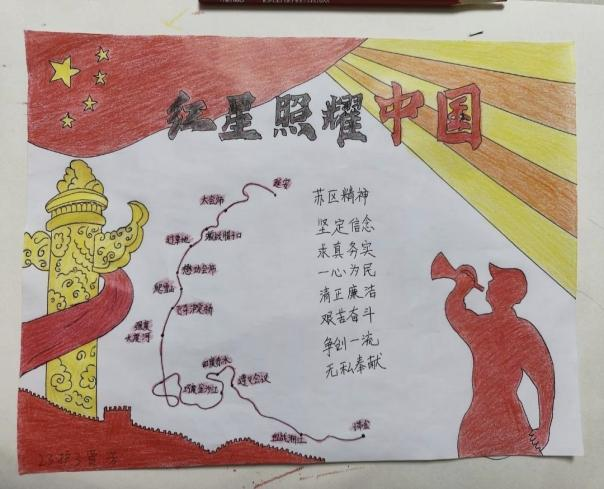 红星照耀中国
延安
大会师
激战腊子口
过草地
懋功会师
爬雪山
飞夺泸定桥
强渡
大渡河
四渡赤水
遵义会议
巧渡金沙江
血战湘江
瑞金
苏区精神
坚定信念
求真务实
一心为民
清正廉洁
艰苦奋斗
争创一流
无私奉献